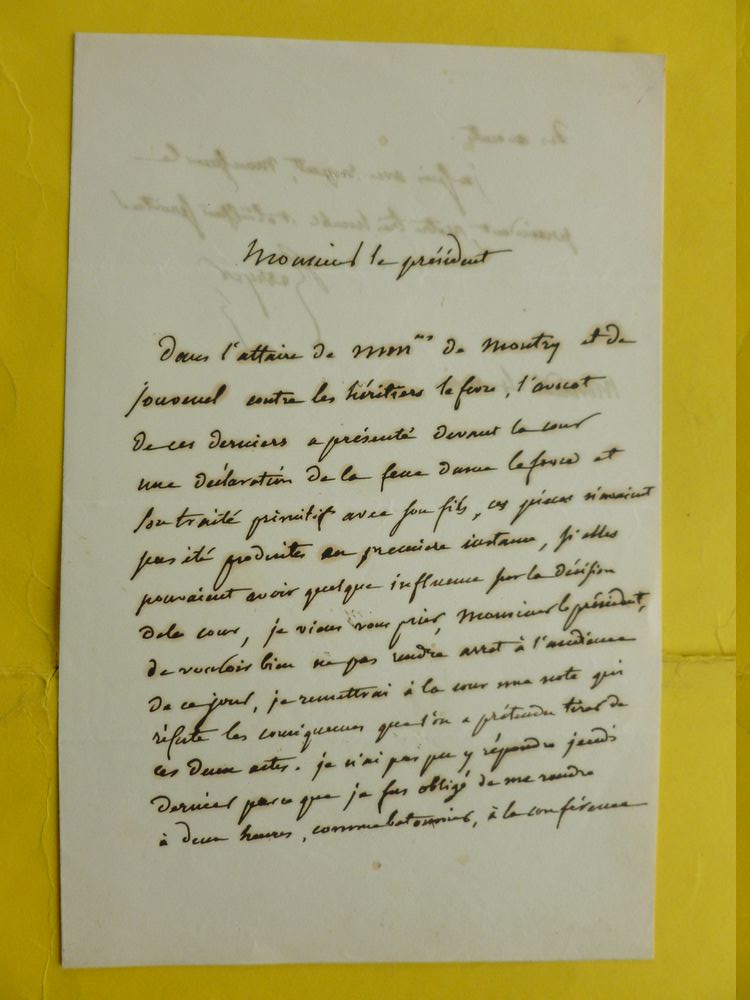 Monsieur le président
Dans l'affaire de MMrs de Montry et de
Jouvenel contre les héritiers lefevre, l'avocat
de ces derniers a présenté devant la cour
une déclaration de la feue dame lefevre et
son traité primitif avec son fils, ces pièces n'avaient
pas été produites en première instance, si elles
pouvaient avoir quelque influence sur la décision
dela cour, je viens vous prier, Monsieur le président,
de vouloir bien ne pas rendre arret à l'audience
de ce jour, je remettrai à la cour une note qui
réfute les consiquences que l'on a prétendu tirer de
ces deux actes. je n'ai pas pu y répondre jeudi
dernier parce que je fus obligé de me rendre
à deux heures, comme batonnier, à la conférence